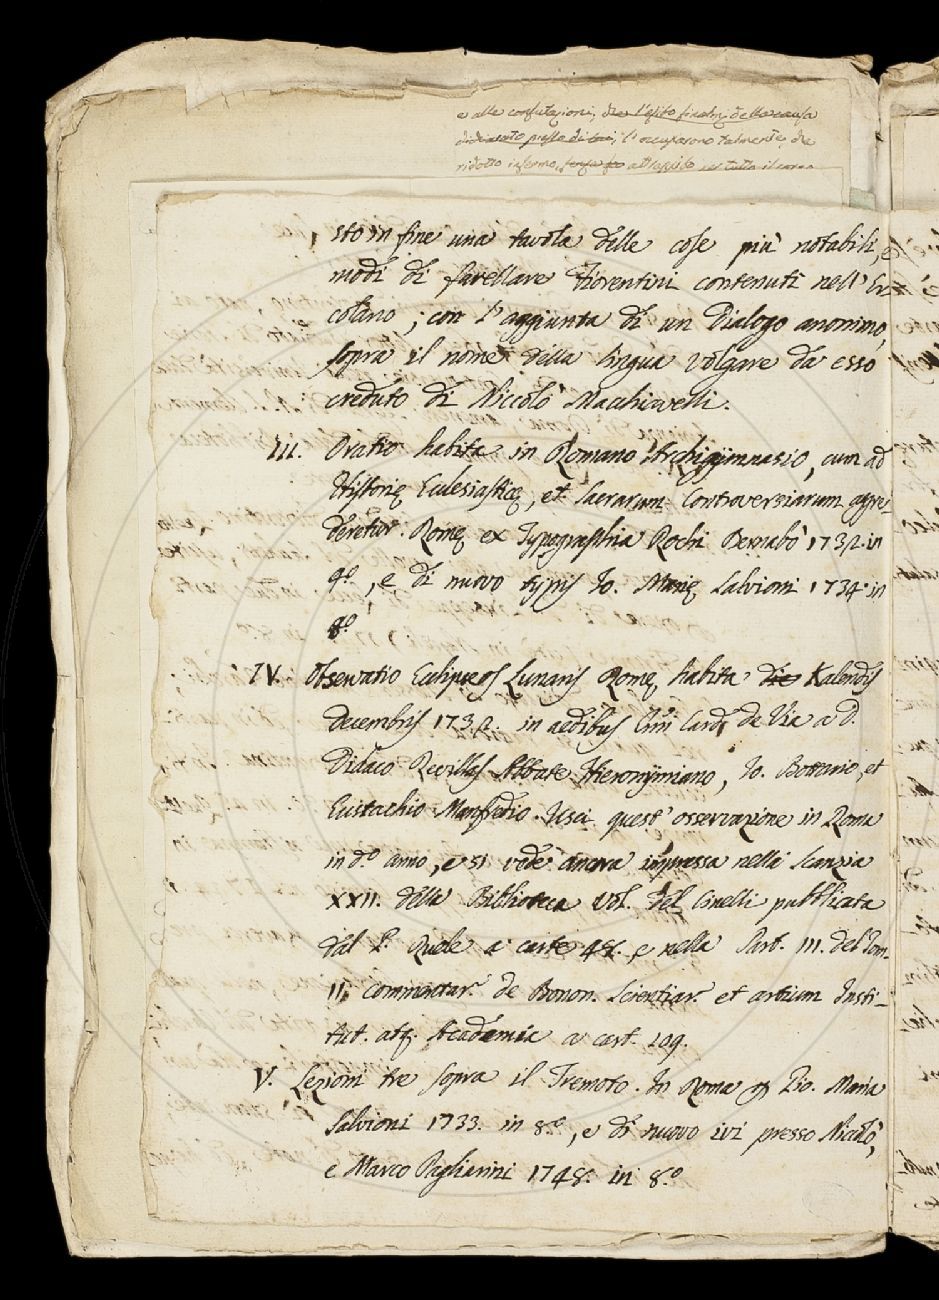 e alle confutazioni, che l'esito finale della causa
l'occuparono talmente, che
ridotto infermo, attaccato
sto in fine una tavola delle cose più notabili, e
modi di favellare Fiorentini contenuti nell'Er-
colano; con l'aggiunta di un Dialogo anonimo,
sopra il nome della lingua volgare da esso
creduto di Niccolò Macchiavelli.
III. Oratio habita in Romano Archigymnasio, cum ad
Historię Eclesiasticę, et Sacrarum Controversiarum aggre-
deretur. Romę ex Typographia Rochi Bernabò 1732. in
4.º, e di nuovo typis Io. Marię Salvioni 1734. in
8.º
IV. Observatio Eclipseos Lunaris Romę habita die Kalendis
Decembris 1732. in aedibus Emi Card. de Via a D.
Didaco Revillas Abbate Hieronymiano, Io. Bottario, et
Eustachio Manfredio. Uscì quest' osservazione in Roma
in d.º anno, e si vede ancora impressa nella Scanzia
XXII. della Biblioteca Vol. del Cinelli pubblicata
dal P. Ruele a carte 48. e nella Part. III. del Tom.
II. commentar. de Bonon. Scientiar. et artium Insti-
tut. atq. Academia a cart. 109.
V. Lezioni tre sopra il Tremoto. In Roma p Gio. Maria
Salvioni 1733. in 8.º, e di nuovo ivi presso Niccolò,
e Marco Pagliarini 1748. in 8.º